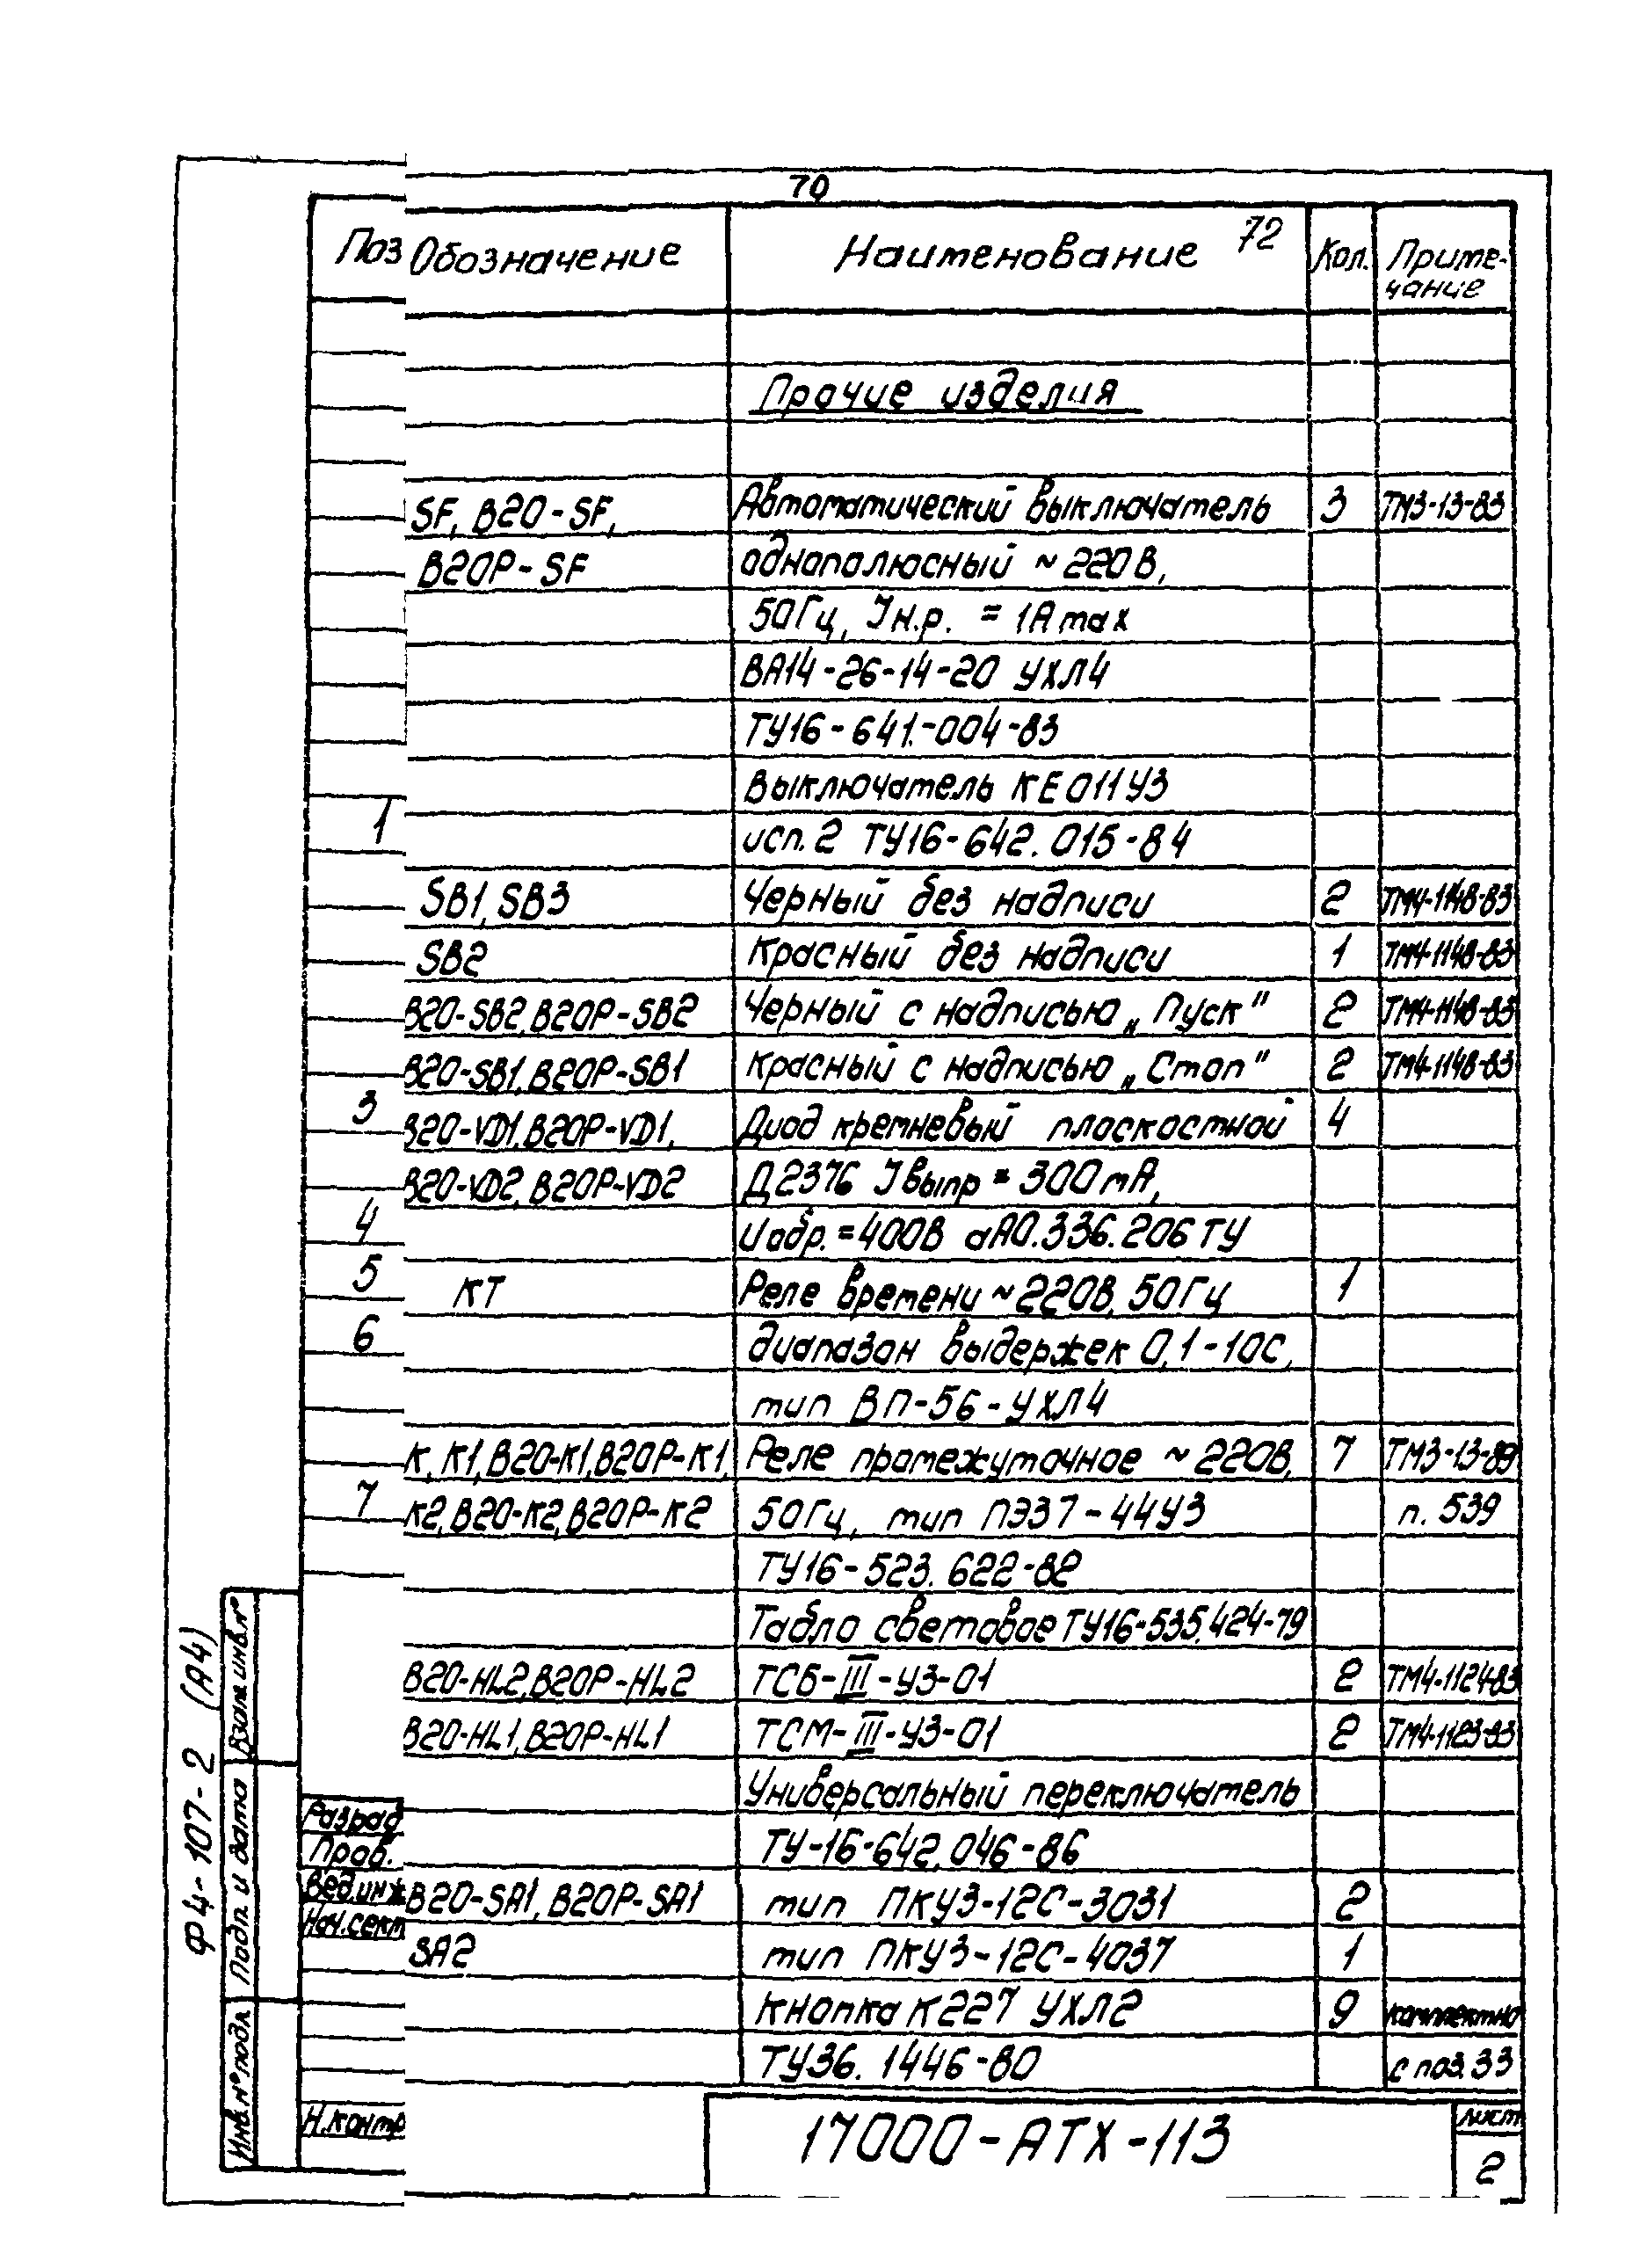 70
72
Поз Обозначение Наименование Кол. Приме-
чание
Прочие изделия
SF, В20-SF, Автоматический выключатель 3 ТМ3-13-83
В20Р-SF однополюсный ~220В,
50Гц, Iн.р. = 1А max
ВА14-26-14-20 УХЛ4
ТУ16-641.-004-83
Выключатель КЕ011У3
1 исп.2 ТУ16-642.015-84
SB1, SB3 Черный без надписи 2 ТМ4-1148-83
SB2 Красный без надписи 1 ТМ4-1148-83
В20-SB2, В20Р-SB2 Черный с надписью „Пуск" 2 ТМ4-1148-83
В20-SB1, В20Р-SB1 Красный с надписью „Стоп" 2 ТМ4-1148-83
3 В20-VD1, В20Р-VD1, Диод кремневый плоскостной 4
В20-VD2, В20Р-VD2 Д237Б Iвыпр = 300mA,
4 Uобр. = 400В аА0.336.206 ТУ
5 КТ Реле времени ~220В, 50Гц 1
6 диапазон выдержек 0,1-10с,
тип ВЛ-56-УХЛ4
К, К1, В20-К1, В20Р-К1, Реле промежуточное ~220В, 7 ТМ3-13-89
7 К2, В20-К2, В20Р-К2 50Гц, тип ПЭ37-44У3 п. 539
ТУ16-523.622-82
Табло световое ТУ16-535.424-79
В20-HL2, В20Р-HL2 ТСБ-III-У3-01 2 ТМ4-1124-83
В20-HL1, В20Р-HL1 ТСМ-III-У3-01 2 ТМ4-1123-83
Универсальный переключатель
ТУ-16-642.046-86
В20-SA1, В20Р-SA1 тип ПКУ3-12С-3031 2
SA2 тип ПКУ3-12С-4037 1
Кнопка К227 УХЛ2 9 комплектно
ТУ36.1446-80 с поз.33
Разраб
Пров.
Вед.инж
Нач.сект
Н.контр
17000-АТХ-113
лист
2
Ф4-107-2 (А4)
Взам инв.№
Подп. и дата
Инв.№ подл.